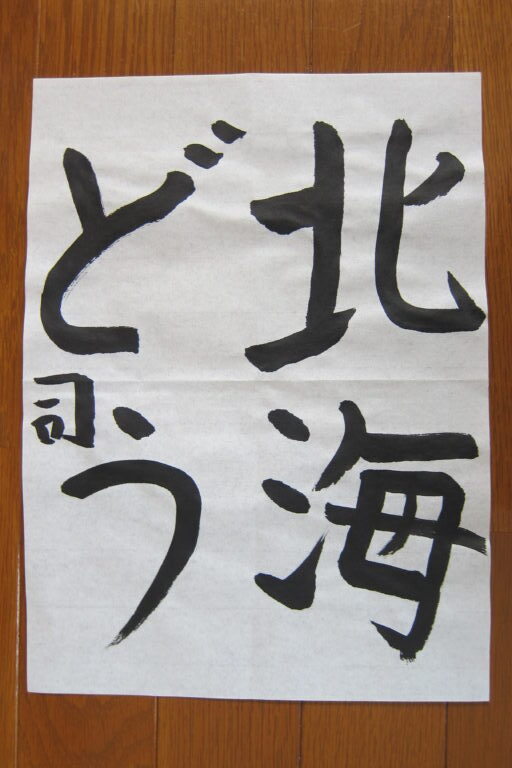 北海
どう
司